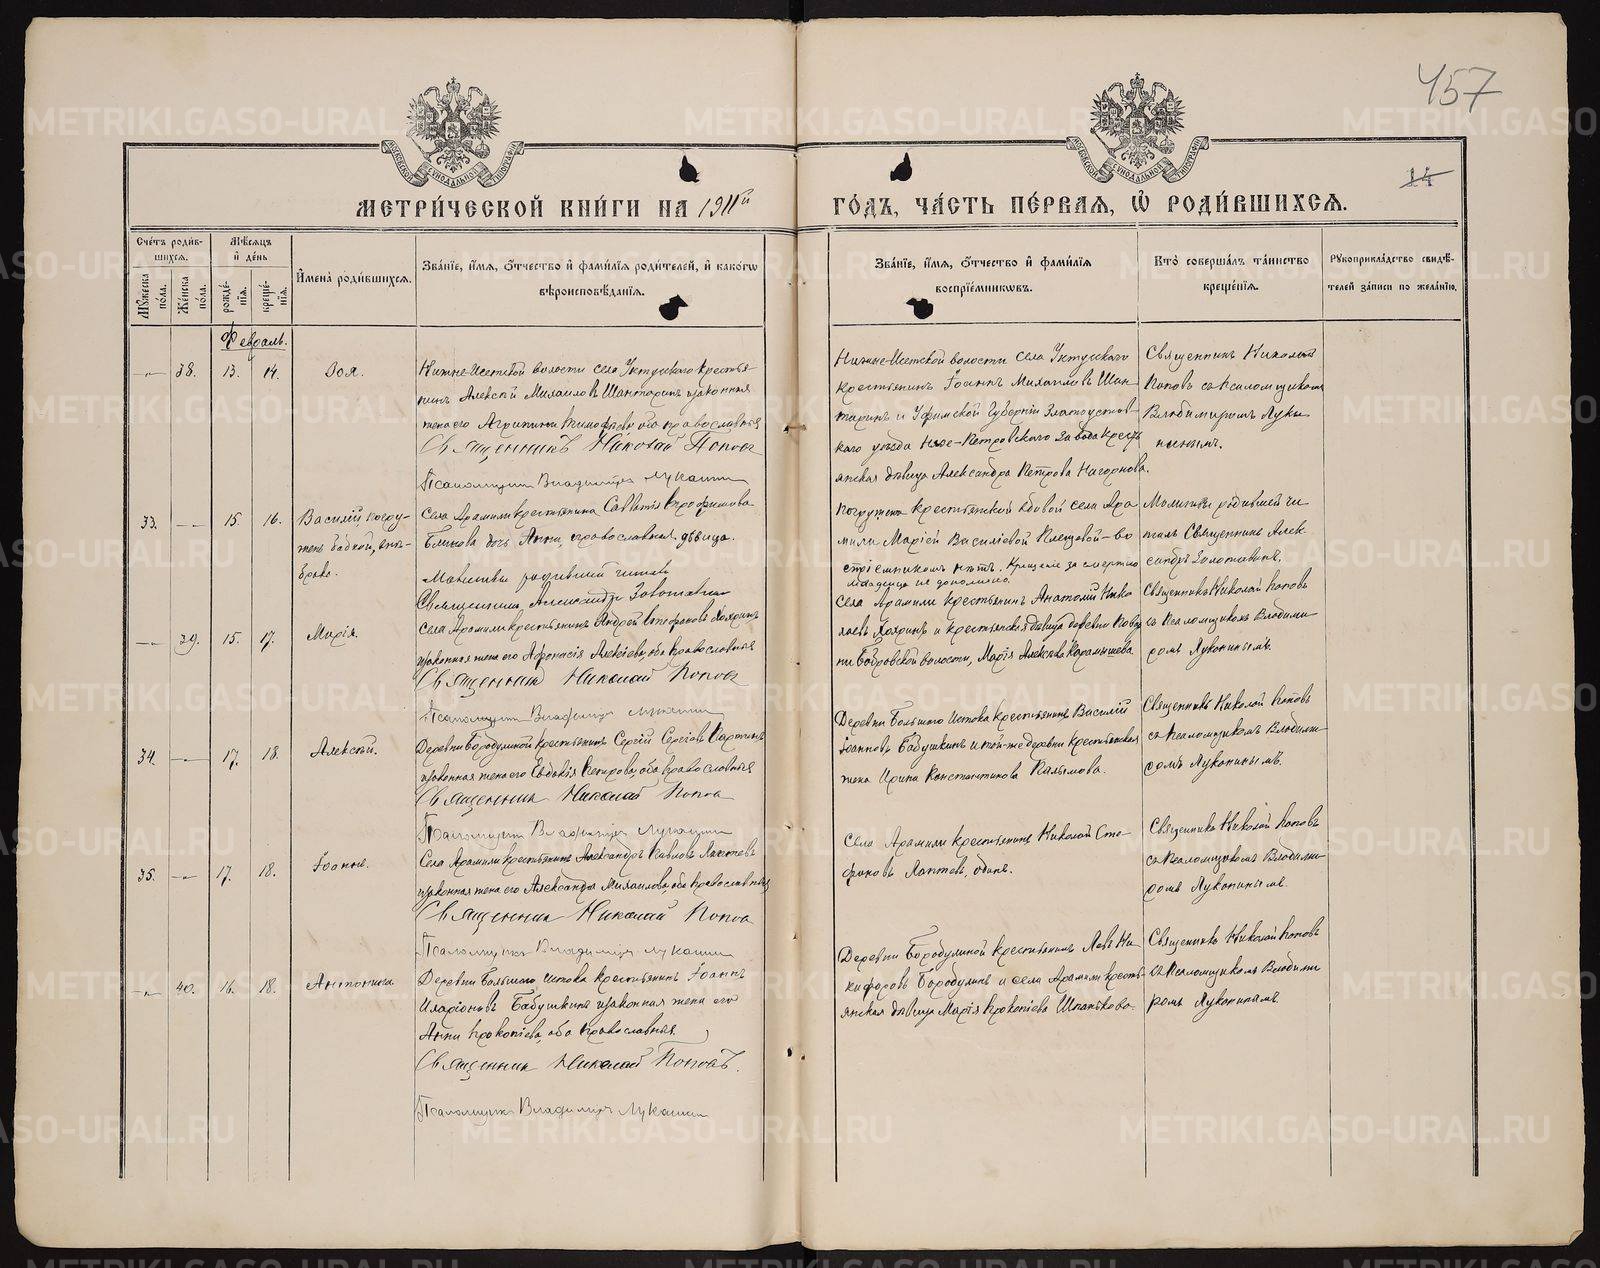 457
14
МЕТРИ́ЧЕСКОЙ КНИ́ГИ НА 1911й ГО́ДЪ, ЧА́СТЬ ПЕ́РВАЯ, Ѡ РОДИ́ВШИХСЯ.
Сче́тъ роди́вшихся.
Му́жеска по́ла.
Же́нска по́ла.
Мѣ́сяцъ и де́нь
рожде́нія.
креще́нія.
И҆мена̀ роди́вшихся.
Зва́ніе, и҆́мя, ѻ҆́тчество и҆ фами́лія роди́телей, и҆ како́гѡ
вѣроисповѣ́данія.
Зва́ніе, и҆́мя, ѻ҆́тчество и҆ фами́лія
воспріе́мникѡвъ.
Кто̀ соверша́лъ та́инство
креще́нія.
Рукоприкла́дство свидѣ́-
телей за́писи по жела́нію.
Февраль.
38. 13. 14. Зоя.
Нижне-Исетской волости села Уктусского крестья-
нинъ Алексѣй Михаиловъ Шантаринъ и законная
жена его Агрипина Тимофеева оба православные
Священникъ Николай Поповъ
Псаломщикъ Владимиръ Лукании
Нижне-Исетской волости села Уктусского
крестьянинъ Іоаннъ Михаиловъ Шан-
таринъ и Уфимской Губерніи Златоустов-
каго уѣзда Нязе-Петровского Завода крест
янская дѣвица Александра Петрова Нагорнова.
Священникъ Николай
Поповъ съ псаломщикомъ
Владимиромъ Луки-
нынымъ.
33. 15. 16. Василій, погру-
женъ бабкой, вне-
брачн.
Села Арамили крестьянина Савватія Ерофимова
Блинова дочь Анна, православная дѣвица.
Молитвы родившей читалъ
Священникъ Александръ Золотавинъ
Погруженъ крестьянской вдовой села Ара-
мили Маріей Василіевой Клещевой – во
спріемникомъ нѣтъ. Крещеніе за смертію
младенца не дополнено.
Молитвы родившей чи-
талъ Священникъ Алек-
сандръ Золотавинъ.
39. 15. 17. Марія.
Села Арамили крестьянинъ Андрей Стефановъ
законная жена его Афонасія Алексіева, оба православные
Священникъ Николай Поповъ
Псаломщикъ Владимиръ Лукании
Села Арамили крестьянинъ Анатолій Нико
лаевъ и крестьянская дѣвица деревни
Бобровской волости, Марія Алексіева Карамышева
Священникъ Николай Поповъ
съ Псаломщикомъ Владими-
ромъ Луканинымъ.
34. 17. 18. Алексѣй.
Деревни Бородулиной крестьянинъ Сергій Сергіевъ
законная жена его Евдокія Петрова, оба православные
Священникъ Николай Поповъ
Псаломщикъ Владимиръ Лукании
Деревни Большого Истока крестьянинъ Василій
Іоанновъ Бабушкинъ и той-же деревни крестьянская
жена Ирина Константинова Калымова.
Священникъ Николай Поповъ
съ Псаломщикомъ Владими-
ромъ Луканинымъ.
35. 17. 18. Іоаннъ.
Села Арамили крестьянинъ Александръ Павловъ Лаптевъ
законная жена его Александра Михаилова, оба православные
Священникъ Николай Поповъ
Псаломщикъ Владимиръ Лукании
Села Арамили крестьянинъ Николай Сте-
фановъ Лаптевъ, одинъ.
Священникъ Николай Поповъ
съ Псаломщикомъ Владими-
ромъ Луканинымъ.
40. 16. 18. Антонина
Деревни Большого Истока крестьянинъ Іоаннъ
Иларіоновъ Бабушкинъ законная жена его
Анна Прокопіева, оба православные.
Священникъ Николай Поповъ.
Псаломщикъ Владимиръ Лукании
Деревни Бородулиной крестьянинъ Левъ Ни-
кифоровъ Бородулинъ и села Арамили кресть
янская дѣвица Марія Прокопіева Шпанькова.
Священникъ Николай Поповъ
съ Псаломщикомъ Владими
ромъ Луканинымъ.
METRIKI.GASO-URAL.RU